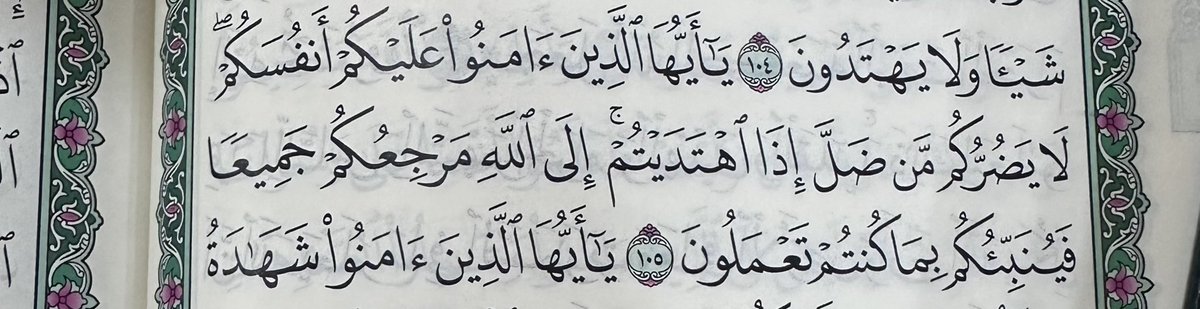 شَيْـًٔا وَلَا يَهْتَدُونَ ١٠٤ يَٰٓأَيُّهَا ٱلَّذِينَ ءَامَنُوا۟ عَلَيْكُمْ أَنفُسَكُمْۖ
لَا يَضُرُّكُم مَّن ضَلَّ إِذَا ٱهْتَدَيْتُمْۚ إِلَى ٱللَّهِ مَرْجِعُكُمْ جَمِيعًا
فَيُنَبِّئُكُم بِمَا كُنتُمْ تَعْمَلُونَ ١٠٥ يَٰٓأَيُّهَا ٱلَّذِينَ ءَامَنُوا۟ شَهَٰدَةُ